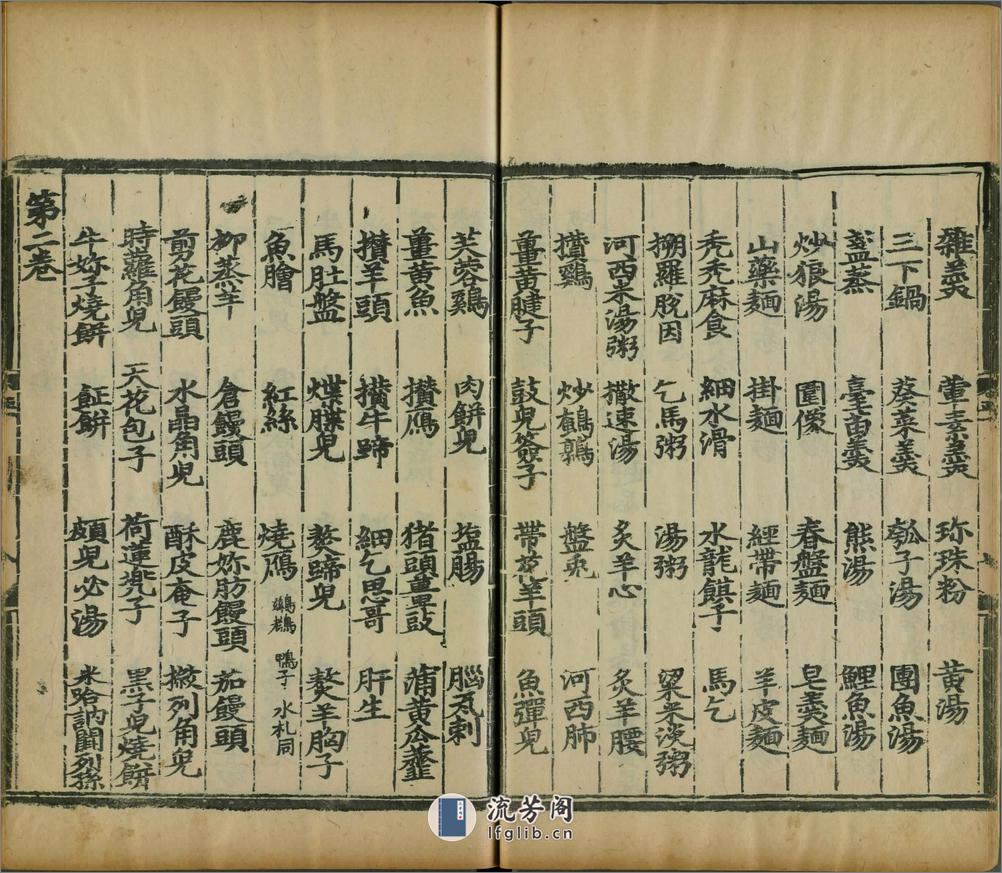 雜羹 葷素羹 珎珠粉 黃湯
三下鍋 葵菜羹 瓠子湯 團魚湯
盞蒸 臺苗羹 熊湯 鯉魚湯
炒狼湯 圍像 春盤麵 皂羹麵
山藥麵 掛麵 經帶麵 羊皮麵
禿禿麻食 細水滑 水龍䭜子 馬乞
搠羅脫因 乞馬粥 湯粥 粱米淡粥
河西米湯粥 撒速湯 炙羊心 炙羊腰
攢鷄 炒鵪鶉 盤兎 河西肺
薑黃腱子 鼓兒簽子 帶花羊頭 魚彈兒
芙蓉鷄 肉餅兒 塩腸 腦瓦剌
薑黃魚 攢鴈 猪頭薑豉 蒲黃瓜虀
攢羊頭 攢牛蹄 細乞思哥 肝生
馬肚盤 煠䐑兒 熬蹄兒 熬羊胸子
魚膾 紅絲 燒鴈 鴨子 水札同
柳蒸羊 倉饅頭 鹿妳肪饅頭 茄饅頭
剪花饅頭 水晶角兒 酥皮奄子 撇列角兒
時蘿角兒 天花包子 荷蓮兜子 黑子兒燒餅
牛妳子燒餅 䬳餅 頗兒必湯 米哈訥闊列孫
第二卷
流芳阁
lfglib.cn